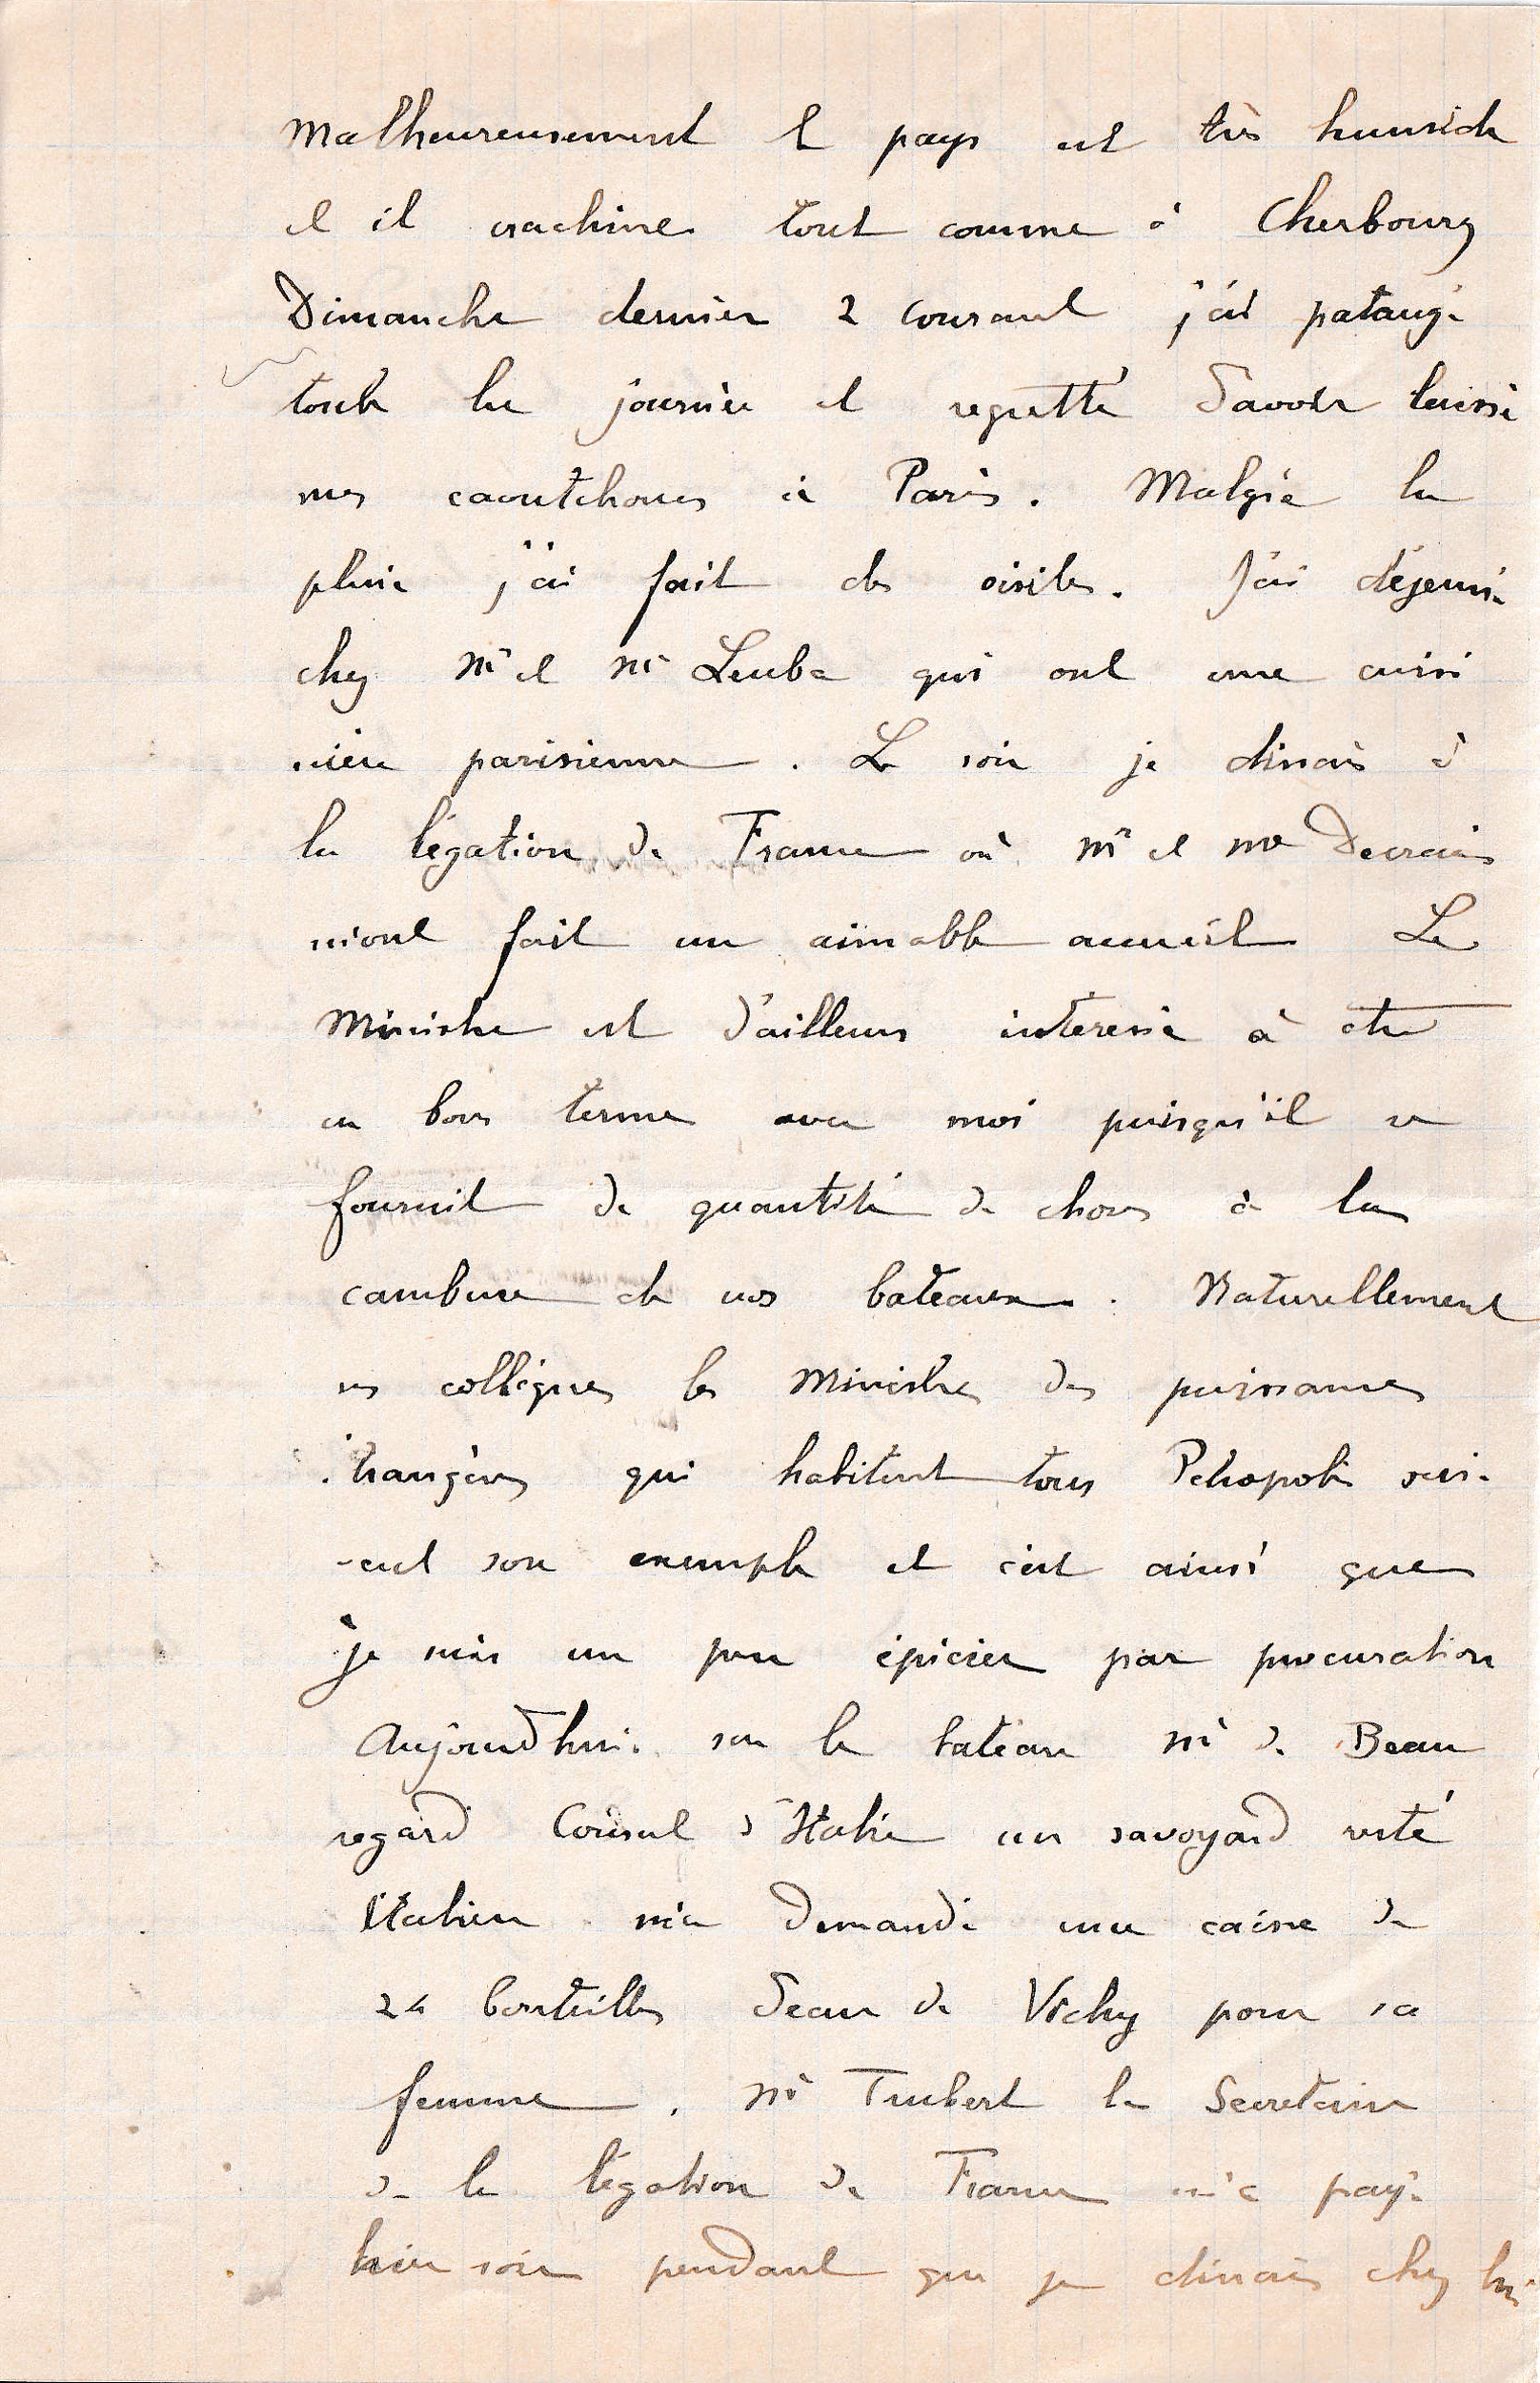 Malheureusement le pays est très humide
et il crachine tout comme à Cherbourg
Dimanche dernier 2 courant j'ai pataugé
toute la journée et regretté d'avoir laissé
mes caoutchoucs à Paris. Malgré la
pluie j'ai fait des visites. J'ai déjeuné
chez Mr et Me Leuba qui ont une cuisi
nière parisienne. Le soir je dinais à
la légation de France où Mr et Me Decrais
m'ont fait un aimable accueil Le
Ministre est d'ailleurs interessé à être
en bons termes avec moi puisqu'il se
fournit de quantité de choses à la
cambuse de nos bateaux. Naturellement
ses collègues les Ministres des puissances
étrangères qui habitent tous Petropolis sui-
-vent son exemple et c'est ainsi que
je suis un peu épicier par procuration
Aujourd'hui sur le bateau Mr de Beau
regard Consul d'Italie un savoyard resté
Italien m'a demandé une caisse de
24 bouteilles d'eau de Vichy pour sa
femme. Mr Trubert le Secretaire
de la légation de France m'a payé
hier soir pendant que je dinais chez lui